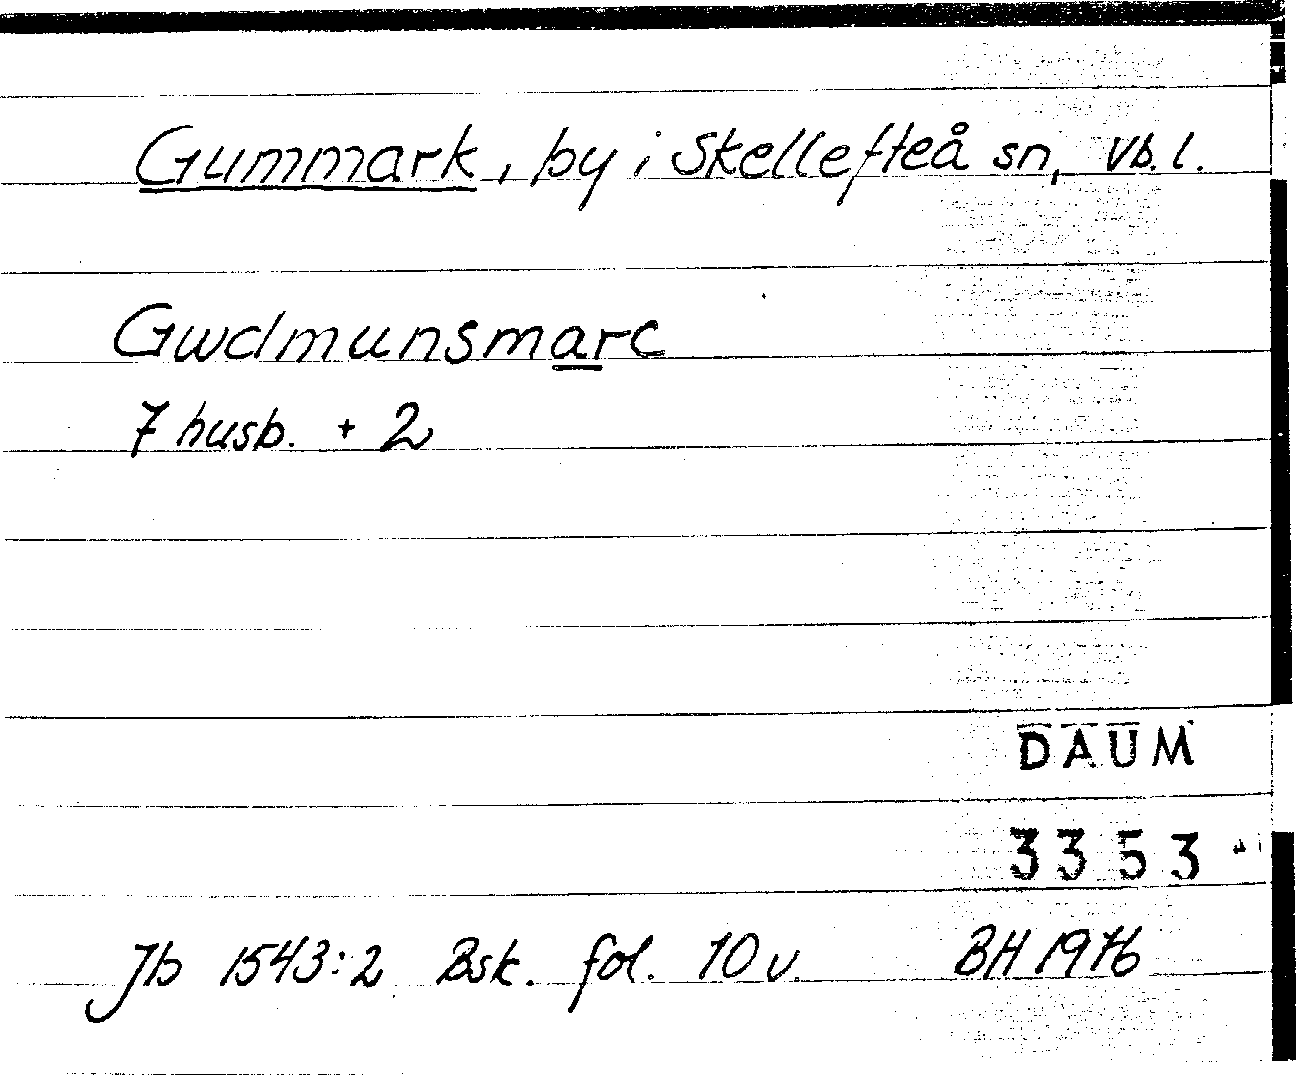 Gummark, by i Skellefteå sn, Vb. l.
Gwdmunsmarc
7 husb. + 2
DAUM
3353
Jb 1543:2 Bsk. fol. 10 v. BH 1976